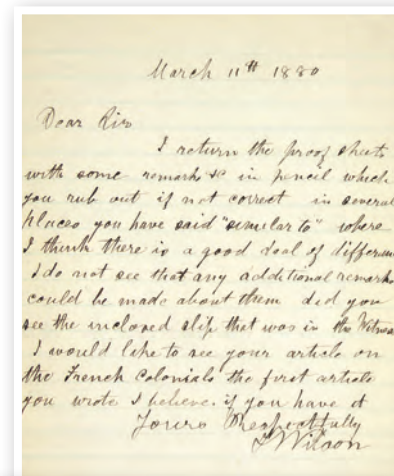 March 11th 1880
Dear Sir
I return the proof sheets
with some remarks &c in pencil which
you rub out if not correct in several
places you have said "similar to" where
I think there is a good deal of differen
I do not see that any additional remarks
could be made about them did you
see the inclosed slip that was in the Witness
I would like to see your article on
the French Colonials the first article
you wrote I believe. if you have it
Yours Respectfully
Wilson